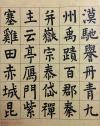 漠馳譽丹青九
州禹跡百郡秦
并嶽宗泰岱禪
主云亭鴈門紫
塞雞田赤城昆